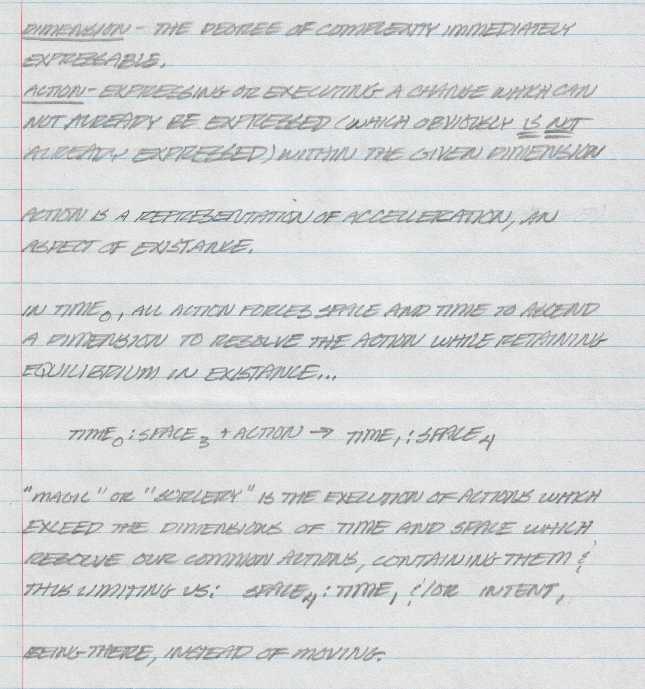 DIMENSION - THE DEGREE OF COMPLEXITY IMMEDIATELY
EXPRESSABLE.
ACTION - EXPRESSING OR EXECUTING A CHANGE WHICH CAN
NOT ALREADY BE EXPRESSED (WHICH OBVIOUSLY IS NOT
ALREADY EXPRESSED) WITHIN THE GIVEN DIMENSION
ACTION IS A REPRESENTATION OF ACCELLERATION, AN
ASPECT OF EXISTANCE.
IN TIME₀, ALL ACTION FORCES SPACE AND TIME TO ASCEND
A DIMENSION TO RESOLVE THE ACTION WHILE RETAINING
EQUILIBRIUM IN EXISTANCE...
TIME₀:SPACE₃ + ACTION → TIME₁:SPACE₄
"MAGIC" OR "SORCERY" IS THE EXECUTION OF ACTIONS WHICH
EXCEED THE DIMENSIONS OF TIME AND SPACE WHICH
RESOLVE OUR COMMON ACTIONS, CONTAINING THEM &
THUS LIMITING US: SPACE₄:TIME₁ &/OR INTENT,
BEING THERE, INSTEAD OF MOVING.